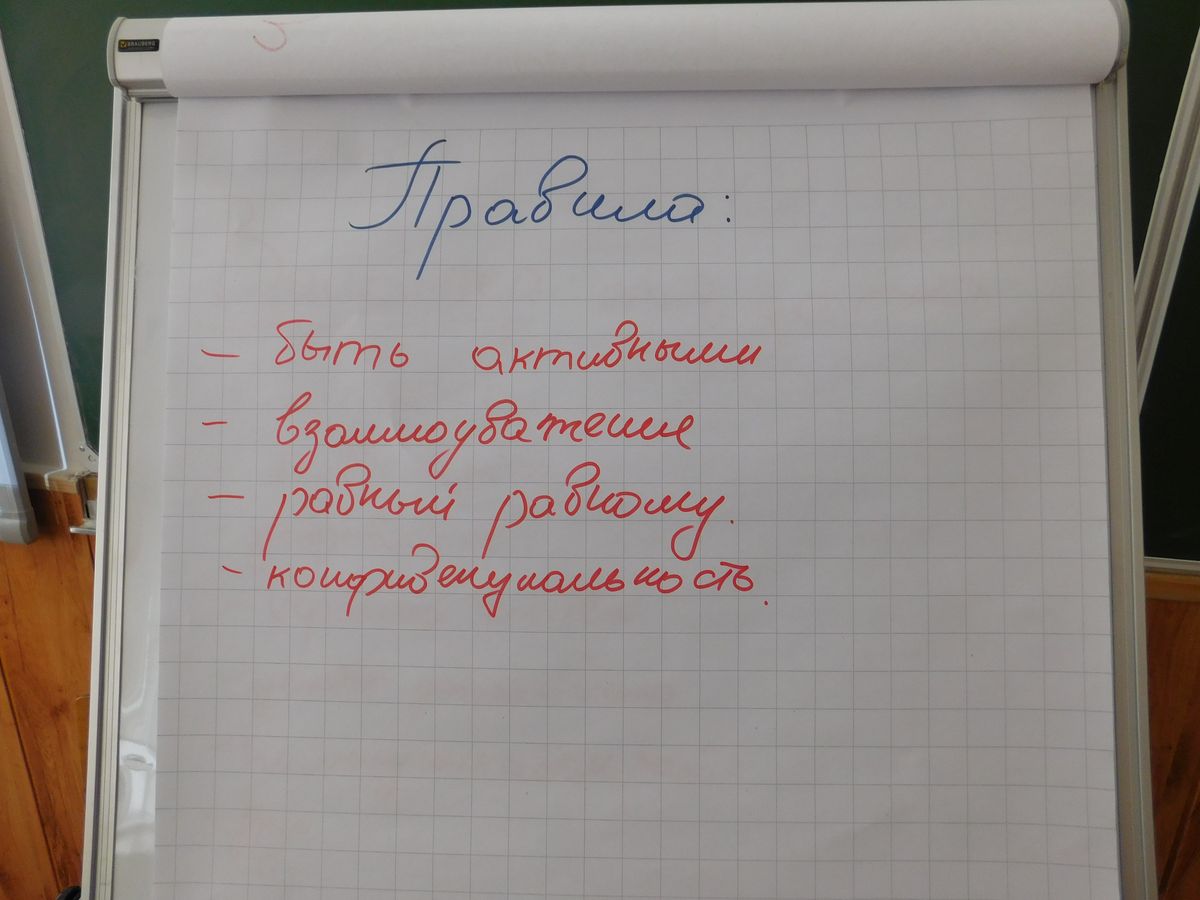 BRAUBERG
Правила:
- быть активными
- взаимоуважение
- равный равному.
- конфиденциальность.